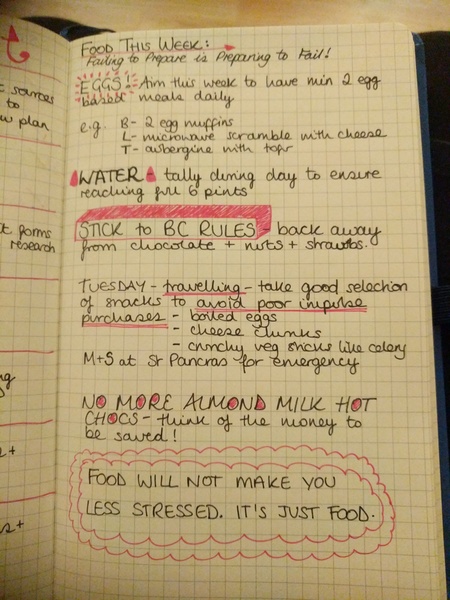 FOOD THIS WEEK:
Failing to Prepare is Preparing to Fail!
EGGS! Aim this week to have min 2 egg
based meals daily
e.g. B- 2 egg muffins
L- microwave scramble with cheese
T- aubergine with tofu
WATER - tally during day to ensure
reaching full 6 pints
STICK to BC RULES - back away
from chocolate + nuts + strawbs.
TUESDAY - travelling - take good selection
of snacks to avoid poor impulse
purchases - boiled eggs
- cheese chunks
- crunchy veg sticks like celery
M+S at St Pancras for emergency
NO MORE ALMOND MILK HOT
CHOCS - think of the money to
be saved!
FOOD WILL NOT MAKE YOU
LESS STRESSED. IT'S JUST FOOD.
t sources
to
w plan
forms
research